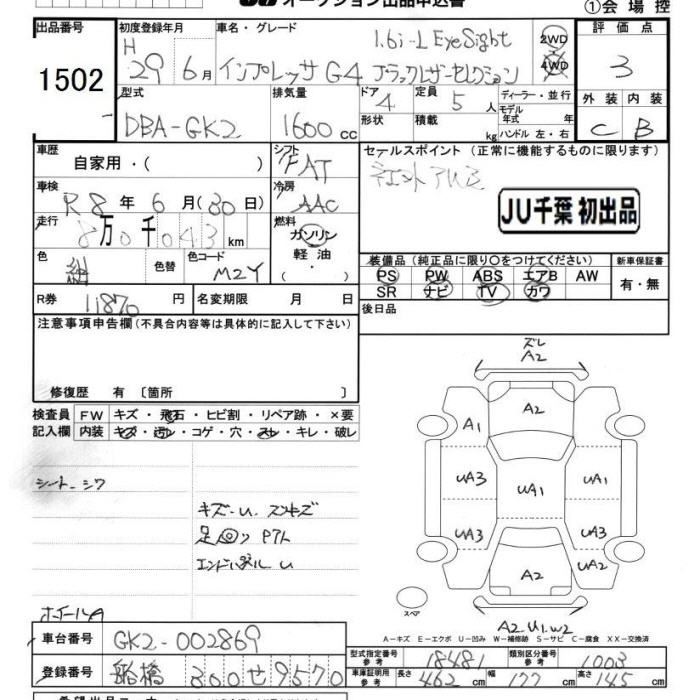 オークション出品申込書
①会場控
出品番号 初度登録年月 車名・グレード 評価点
1502 H 29年 6月 インプレッサ G4 1.6i-L EyeSight ブラックレザーセレクション 2WD 4WD 3
型式 排気量 ドア 定員 ディーラー・並行 外装 内装
DBA-GK2 1600cc 4 5人 モデル年式 年 C B
形状 積載 kg ハンドル 左・右
車歴 シフト セールスポイント (正常に機能するものに限ります)
自家用・( ) FAT
車検 冷房
R8年 6月(30日) AAC JU千葉 初出品
走行 燃料
8万0千043km ガソリン
軽油・
色 色替 色コード 装備品 (純正品に限り〇をつけてください) 新車保証書
紺 M2Y PS PW ABS エアB AW 有・無
SR ナビ TV カワ
R券 11870円 名変期限 月 日 後日品
注意事項申告欄 (不具合内容等は具体的に記入して下さい)
修復歴 有 〔箇所 〕
検査員 FW キズ・飛石・ヒビ割・リペア跡・×要
記入欄 内装 キズ・汚れ・コゲ・穴・スレ・キレ・破レ
シート シワ
キズ・U. スリキズ
足回り
エンドパネル U
ホイールA
ズレ
A2
A2
A1
UA3 UA1 UA1
UA3 UA2
A2 UA2
スペア
A2.U1.W2
A-キズ E-エクボ U-凹み W-補修跡 S-サビ C-腐食 XX-交換済
車台番号 GK2-002869
登録番号 船橋 300 せ 9570
型式指定番号 参考 18481 類別区分番号 参考 1003
車庫証明用 参考 長さ 462cm 幅 177cm 高さ 145cm